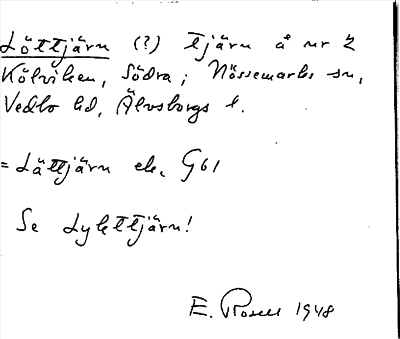 Löttjärn (?) tjärn å nr 2
Kölviken, Södra; Nössemarks sn,
Vedbo hd, Älvsborgs l.
= Lättjärn ek. G61
Se Lykttjärn!
E. Rosell 1948